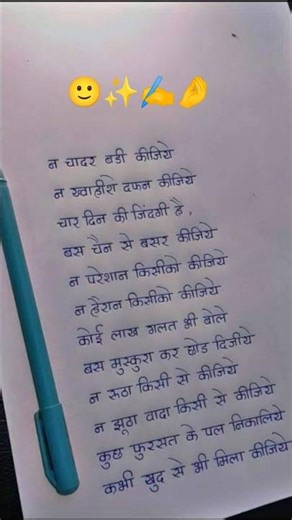 🙂✨✍️🤌
न चादर बडी कीजिये
न ख्वाहीशे दफन कीजिये
चार दिन की जिंदगी है,
बस चैन से बसर कीजिये
न परेशान किसीको कीजिये
न हैरान किसीको कीजिये
कोई लाख गलत भी बोले
बस मुस्कुरा कर छोड दिजीये
न रूठा किसी से कीजिये
न झूठा वादा किसी से कीजिये
कुछ फुरसत के पल निकालिये
कभी खुद से भी मिला कीजिये